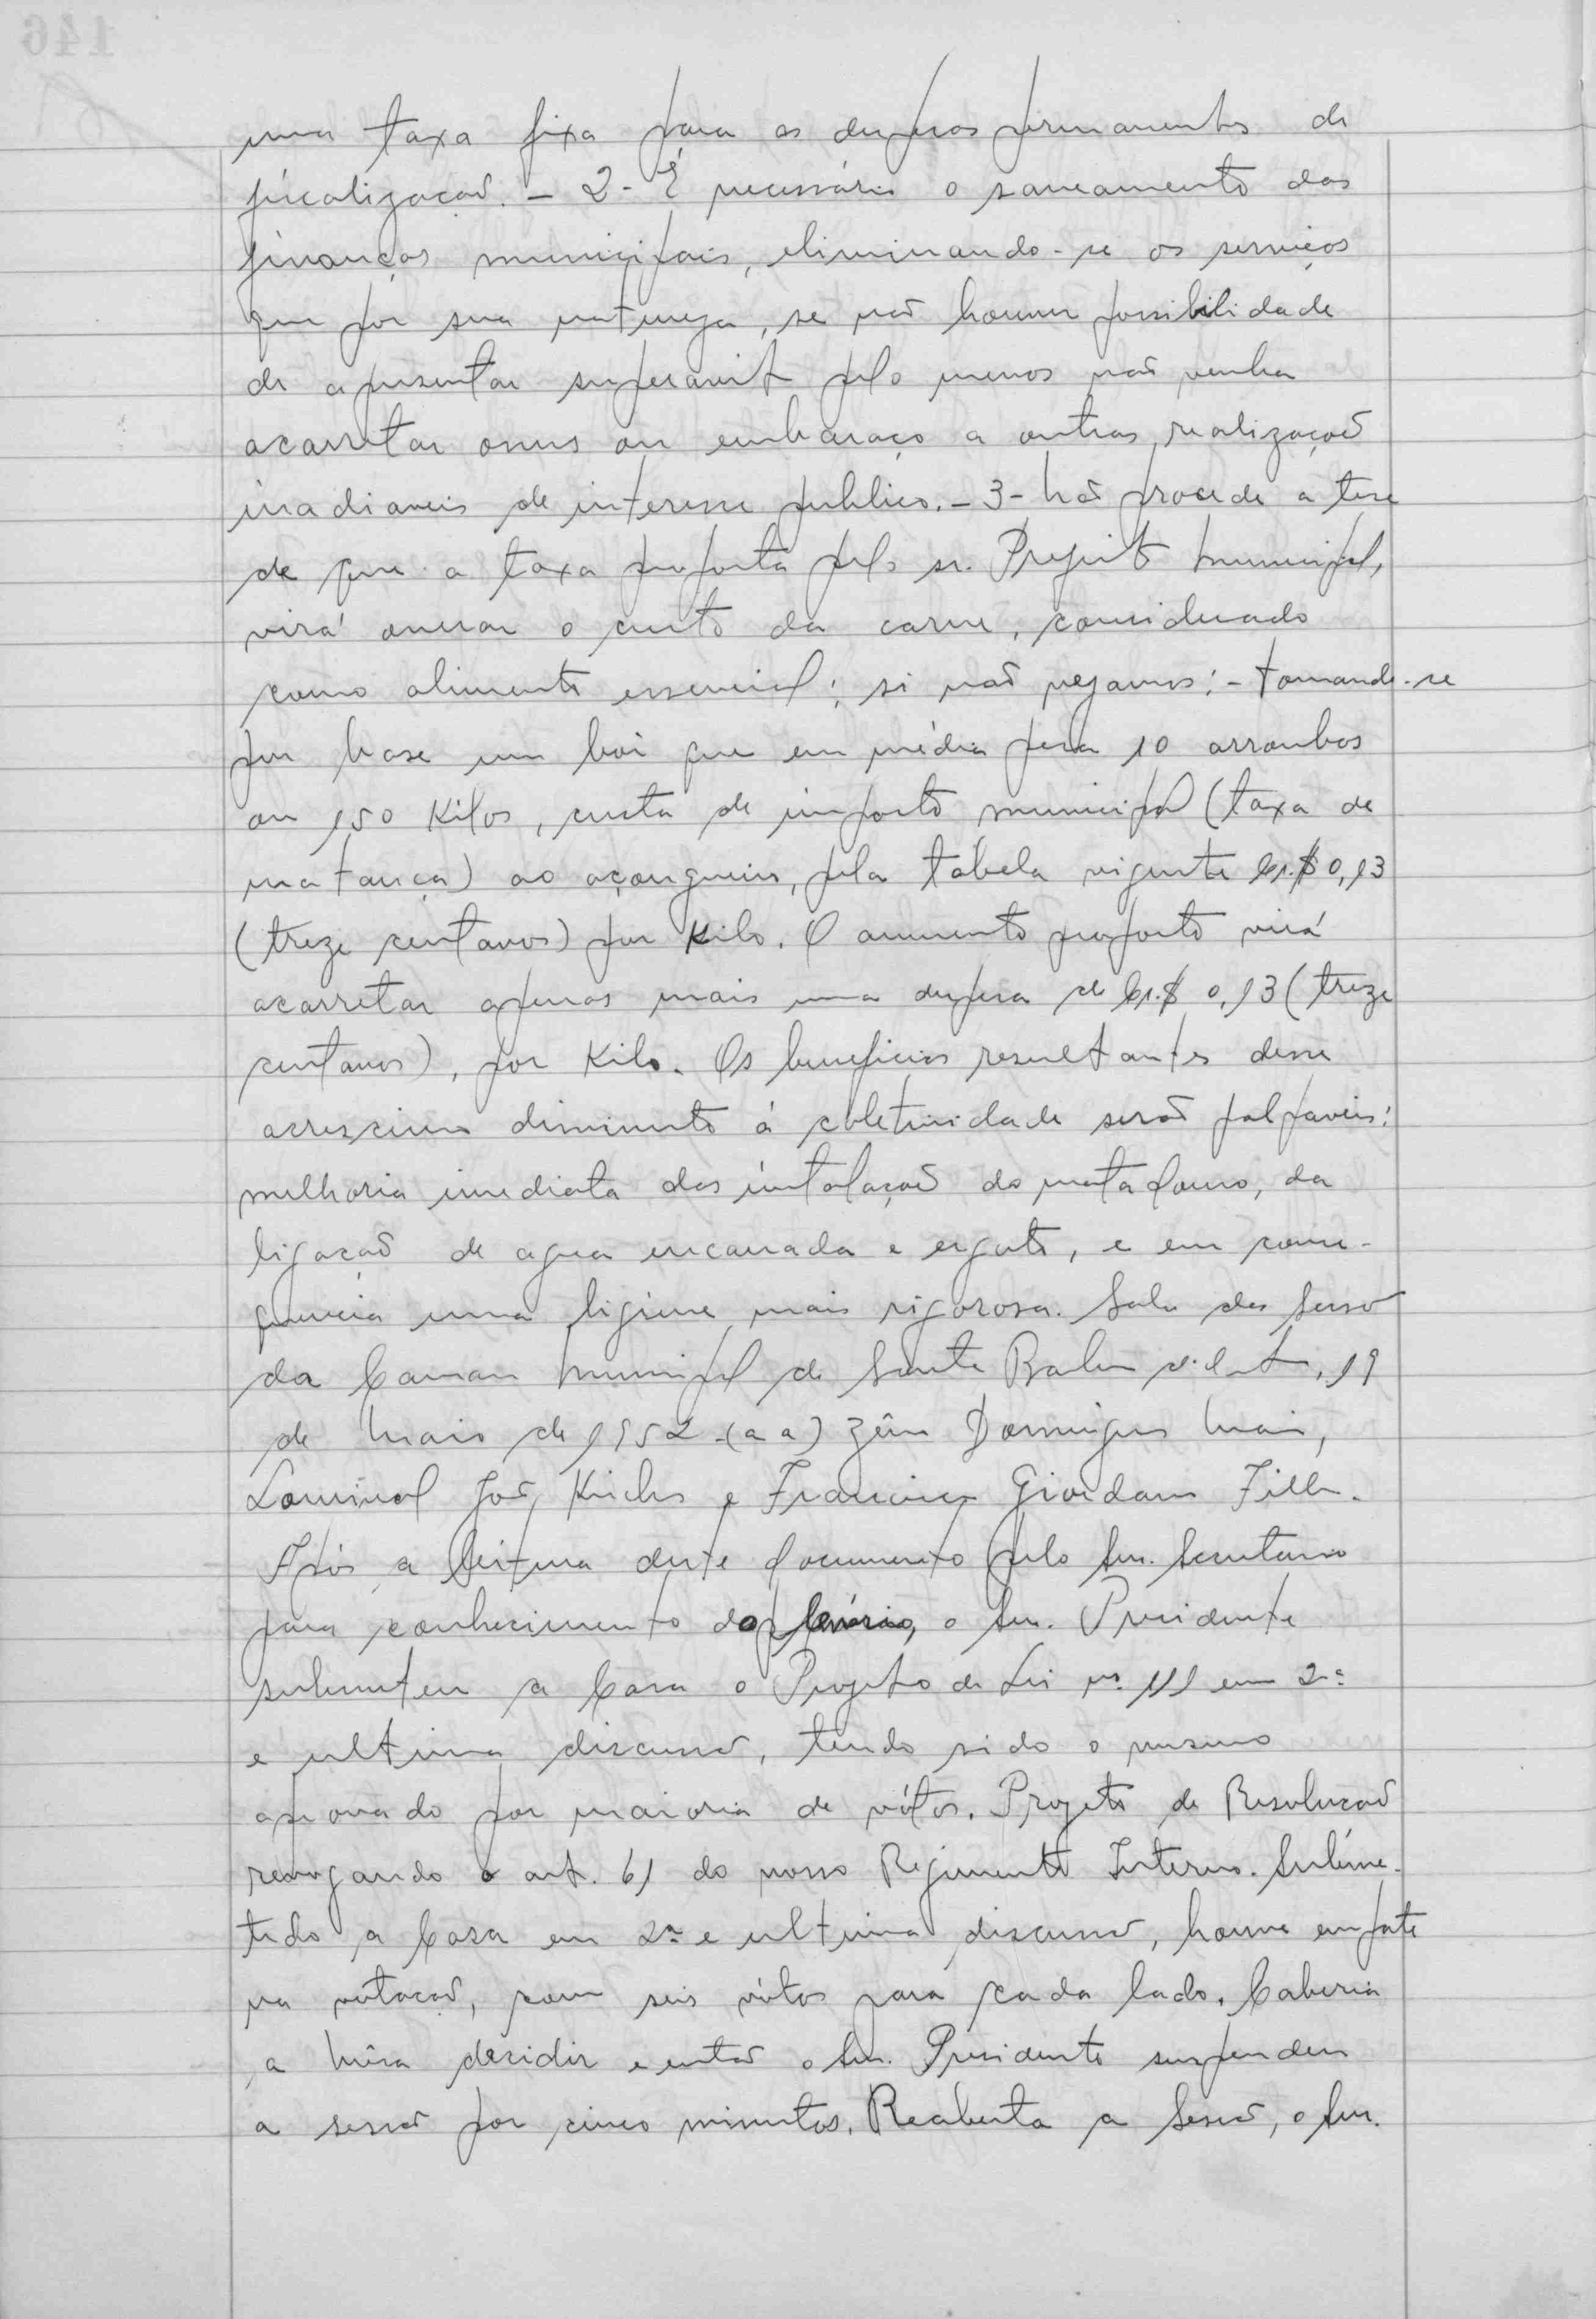 uma taxa fixa para as despesas permanentes de
fiscalização. - 2 - É necessário o saneamento das
finanças municipais, eliminando-se os serviços
que por sua natureza, se não houver possibilidade
de apresentar superavit pelo menos não venha
acarretar onus ou embaraço a outras realização
inadiaveis de interesse publico. - 3 - Não procede a tese
de que a taxa proposta pelo sr. Prefeito Municipal,
virá onerar o custo da carne, considerado
como alimento essencial; si não vejamos: - tomando-se
por base um boi que em média pesa 10 arroubas
ou 150 Kilos, custa de imposto municipal (taxa de
matança) ao açougueiro, pela tabela vigente Cr.$ 0,13
(treze centavos) por Kilo. O aumento proposto virá
acarretar apenas mais uma despesa de Cr.$ 0,13 (treze
centavos), por Kilo. Os beneficios resultantes desse
acrescimo diminuto á coletividade serão palpaveis:
melhoria imediata das instalação do matadouro, da
ligação de agua encanada e esgoto, e em conse-
quencia uma higiene mais rigorosa. Sala das Sessão
da Camara Municipal de Santa Barbara d'Oeste, 19
de Maio de 1952 - (a a) Zêno Domingues Maia,
Lourival José Kirche e Francisco Giordano Filho.
Após a leitura deste documento pelo Snr. Secretario
para conhecimento do plenário, o Snr. Presidente
submeteu a Casa o Projeto de Lei nº 111 em 2ª
e ultima discussão, tendo sido o mesmo
aprovado por maioria de vótos. Projeto de Resolução
revogando o art. 61 do nosso Regimento Interno. Subme-
tido a Casa em 2ª e ultima discussão, houve empate
na votação, com seis vótos para cada lado. Caberia
a Mêsa decidir e então o Snr. Presidente suspendeu
a sessão por cinco minutos. Reaberta a Sessão, o Snr.